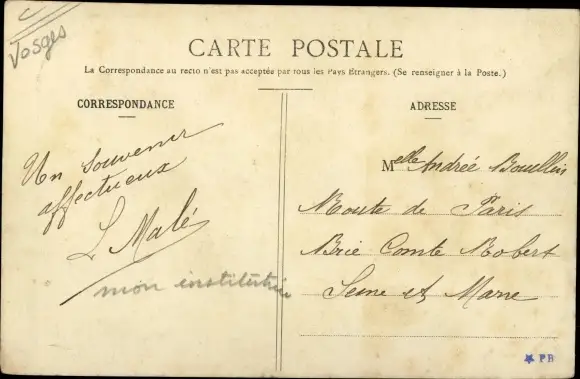 Vosges
CARTE POSTALE
La Correspondance au recto n'est pas acceptée par tous les Pays Étrangers. (Se renseigner à la Poste.)
CORRESPONDANCE
Un souvenir
affectueux
L Malé
mon institutrice
ADRESSE
Melle Andrée
Route de Paris
Brie Comte Robert
Seine et Marne
PB